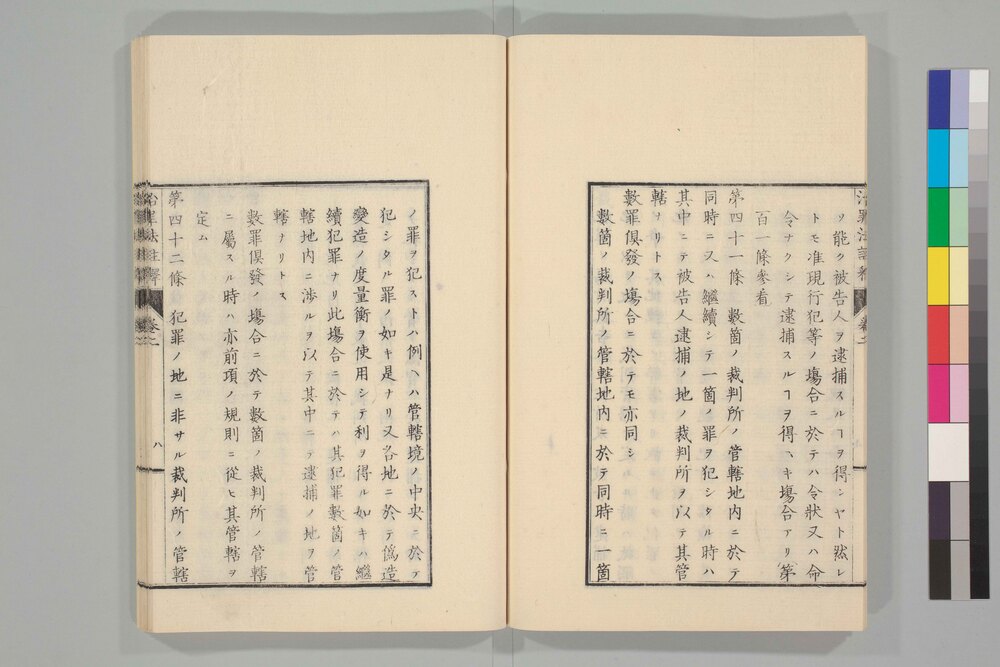 ツ能ク被告人ヲ逮捕スルヿヲ得シヤト然レ
トモ准現行犯等ノ塲合ニ於テハ令狀又ハ命
令ナクシテ逮捕スルヿヲ得ヘキ塲合アリ第
百一條參看
第四十一條 數箇ノ裁判所ノ管轄地内ニ於テ
同時ニ又ハ繼續シテ一箇ノ罪ヲ犯シタル時ハ
其中ニテ被告人逮捕ノ地ノ裁判所ヲ以テ其管
轄ナリトス
數罪倶發ノ塲合ニ於テモ亦同シ
數箇ノ裁判所ノ管轄地内ニ於テ同時ニ一箇
ノ罪ヲ犯ストハ例ヘハ管轄境ノ中央ニ於テ
犯シタル罪ノ如キ是ナリ又各地ニ於テ僞造
變造ノ度量衡ヲ使用シテ利ヲ得ル如キハ繼
續犯罪ナリ此塲合ニ於テハ其犯罪數箇ノ管
轄地内ニ渉ルヲ以テ其中ニテ逮捕ノ地ヲ管
轄ナリトス
數罪倶發ノ塲合ニ於テ數箇ノ裁判所ノ管轄
ニ屬スル時ハ亦前項ノ規則ニ從ヒ其管轄ヲ
定ム
第四十二條 犯罪ノ地ニ非サル裁判所ノ管轄
治罪法註釋 卷之二 八